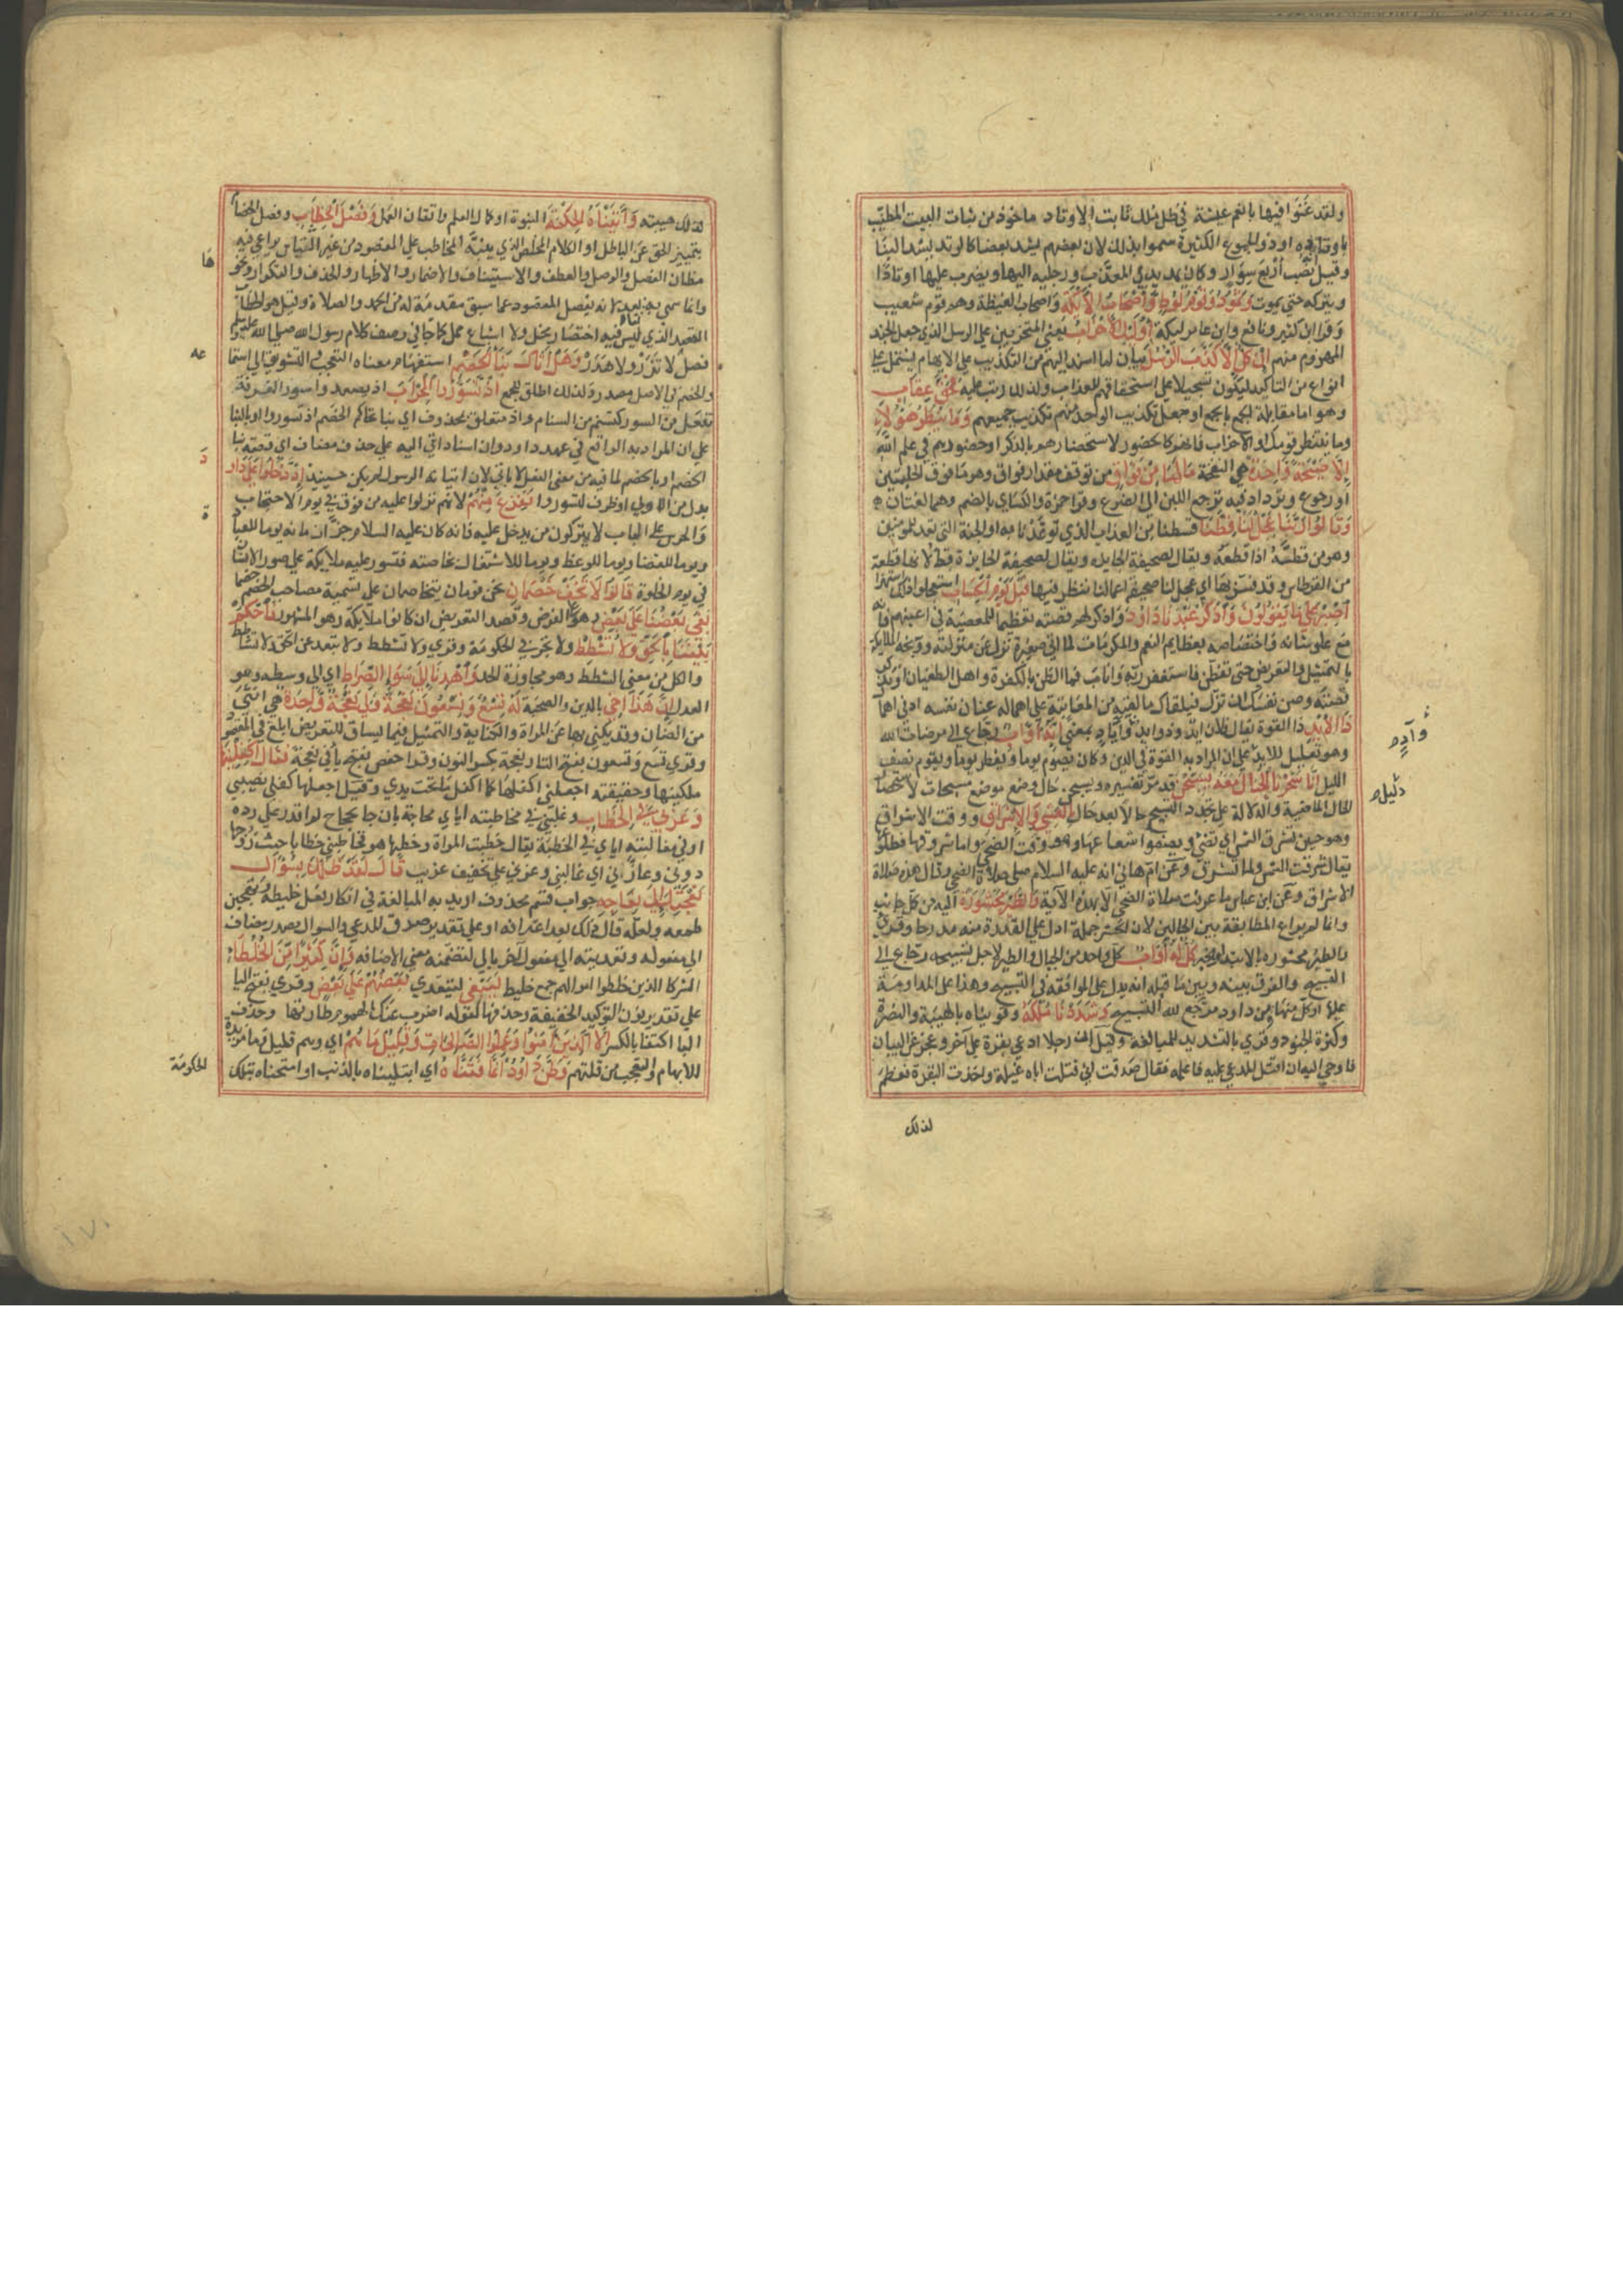 ولقد غنوا فيها بانعم عيشة في ظل ملك ثابت الاوتاد ماخوذ من ثبات البيت المطنب
باوتاده او ذو الجموع الكثيرة سموا بذلك لان بعضهم يشد بعضا كالوتد يشد البنا
وقيل نصب أربع سوار وكان يمد يدي المعذب ورجليه اليها ويضرب عليها اوتادا
ويتركه حتي يموت وَثَمُودُ وَقَوْمُ لُوطٍ وَأَصْحَابُ الأَيْكَةِ واصحاب الغيضة وهم قوم شعيب
وقرا ابن كثير ونافع وابن عامر ليكة أُولَئِكَ الأَحْزَابُ يعني المتحزبين علي الرسل الذي جعل الجند
المهزوم منهم إِنْ كُلٌّ إِلاَّ كَذَّبَ الرُّسُلَ بيان لما اسند اليهم من التكذيب علي الابهام يشتمل علي
انواع من التاكيد ليكون تسجيلا علي استحقاقهم للعذاب ولذلك رتب عليه فَحَقَّ عِقَابِ
وهو اما مقابلة الجمع بالجمع او جعل تكذيب الواحد منهم تكذيب جميعهم وَمَا يَنْظُرُ هَؤُلاءِ
وما ينتظر قومك او الاحزاب فانهم كالحضور لاستحضارهم بالذكر او حضورهم في علم الله
إِلاَّ صَيْحَةً وَاحِدَةً هي النفخة مَا لَهَا مِنْ فَوَاقٍ من توقف مقدار فواق وهو ما فوق الحلبتين
او رجوع وترداد فيه يرجع اللبن الي الضرع وقرا حمزة والكساي بالضم وهما لغتان
وَقَالُوا رَبَّنَا عَجِّلْ لَنَا قِطَّنَا قسطنا من العذاب الذي توعدنا به او الجنة التي تعد للمؤمنين
وهو من قطه اذا قطعه ويقال لصحيفة الجايزة قط لانها قطعة
من القرطاس وقد فسر بها اي عجل لنا صحيفة اعمالنا ننظر فيها قَبْلَ يَوْمِ الْحِسَابِ استعجلوا ذلك استهزا
اصْبِرْ عَلَى مَا يَقُولُونَ وَاذْكُرْ عَبْدَنَا دَاوُدَ واذكر لهم قصته تعظيما للمعصية في اعينهم فانه
مع علو شانه واختصاصه بعظايم النعم والمكرمات لما اتي صغيرة نزل عن منزلته ووبخه الملايكة
بالتمثيل والتعريض حتى تفطن فاستغفر ربه واناب فما الظن بالكفرة واهل الطغيان او تذكر
قصته وصن نفسك ان تزل فيلقاك ما لقيه من المعاتبة علي اهماله عنان نفسه ادني اهمال
ذَا الأَيْدِ ذا القوة يقال فلان ايد وذو ايد وآد وأياد بمعني إِنَّهُ أَوَّابٌ رجاع الي مرضات الله
وهو تعليل للايد دليل علي ان المراد به القوة في الدين وكان يصوم يوما ويفطر يوما ويقوم نصف
الليل إِنَّا سَخَّرْنَا الْجِبَالَ مَعَهُ يُسَبِّحْنَ قد مر تفسيره ويسبحن حال وضع موضع مسبحات لاستحضار
الحال الماضية والدلالة علي تجدد التسبيح حالا بعد حال بِالْعَشِيِّ وَالإِشْرَاقِ ووقت الاشراق
وهو حين تشرق الشمس اي تضئ ويصفو شعاعها وهو وقت الضحي واما شروقها فطلوعها
يقال شرقت الشمس ولما تشرق وعن ام هاني انه عليه السلام صلي صلاة الضحي وقال هذه صلاة
الاشراق وعن ابن عباس ما عرفت صلاة الضحي الا بهذه الآية وَالطَّيْرَ مَحْشُورَةً اليه من كل جانب
وانما لم يراع المطابقة بين الحالين لان الحشر جملة ادل علي القدرة منه مدرجا وقرئ
والطير محشورة بالابتدا والخبر كُلٌّ لَهُ أَوَّابٌ كل واحد من الجبال والطير لاجل تسبيحه رجاع الي
التسبيح والفرق بينه وبين ما قبله انه يدل علي الموافقة في التسبيح وهذا علي المداومة
عليها او كل منهما ومن داود مرجع لله التسبيح وَشَدَدْنَا مُلْكَهُ وقويناه بالهيبة والنصرة
وكثرة الجنود وقري بالتشديد للمبالغة وقيل ان رجلا ادعي بقرة علي آخر وعجز عن البيان
فاوحي اليه ان اقتل المدعي عليه فاعلمه فقال صدقت اني قتلت اباه غيلة واخذت البقرة فعظم
لذلك
وآدم
دليل م
لذلك هيبته وَآتَيْنَاهُ الْحِكْمَةَ النبوة او كمال العلم واتقان العمل وَفَصْلَ الْخِطَابِ وفصل الخصام
بتمييز الحق عن الباطل او الكلام المخلص الذي ينبه المخاطب علي المقصود من غير التباس يراعي فيه
مظان الفصل والوصل والعطف والاستيناف والاضمار والاظهار والحذف والتكرار ونحو
وانما سمي به اما بعد لانه يفصل المقصود عما سبق مقدمة له من الحمد والصلاة وقيل هو الخطاب
القصد الذي ليس فيه اختصار مخل ولا اشباع ممل كما جا في وصف كلام رسول الله صلي الله عليه وسلم
فصل لا نزر ولا هذر وَهَلْ أَتَاكَ نَبَأُ الْخَصْمِ استفهام معناه التعجب والتشويق الي استماعه
والخصم في الاصل مصدر ولذلك اطلق للجمع إِذْ تَسَوَّرُوا الْمِحْرَابَ اذ تصعدوا سور الغرفة
تفعل من السور كتسنم من السنام واذ متعلق بمحذوف اي نبا تحاكم الخصم اذ تسوروا او بالنبا
علي ان المراد به الواقع في عهد داود وان اسناد اتي اليه علي حذف مضاف اي قصة نبا
الخصم او بالخصم لما فيه من معني الفعل لا باتي لان اتيانه الرسول لم يكن حينيذ إِذْ دَخَلُوا عَلَى دَاوُدَ
بدل من الاولي او ظرف لتسوروا فَفَزِعَ مِنْهُمْ لانهم نزلوا عليه من فوق في يوم الاحتجاب
والحرس علي الباب لا يتركون من يدخل عليه فانه كان عليه السلام جزا زمانه يوما للعبادة
ويوما للقضا ويوما للوعظ ويوما للاشتغال بخاصته فتسور عليه ملايكة علي صور الانسان
في يوم الخلوة قَالُوا لا تَخَفْ خَصْمَانِ نحن فوجان متخاصمان علي تسمية مصاحب الخصم خصما
بَغَى بَعْضُنَا عَلَى بَعْضٍ وهو علي الفرض وقصد التعريض ان كانوا ملايكة وهو المشهور فَاحْكُمْ
بَيْنَنَا بِالْحَقِّ وَلا تُشْطِطْ ولا تجر في الحكومة وقري ولا تشطط ولا تبعد عن الحق ولا تشاطط
والكل من معني الشطط وهو مجاوزة الحد وَاهْدِنَا إِلَى سَوَاءِ الصِّرَاطِ اي الي وسطه وهو
العدل إِنَّ هَذَا أَخِي بالدين والصحبة لَهُ تِسْعٌ وَتِسْعُونَ نَعْجَةً وَلِيَ نَعْجَةٌ وَاحِدَةٌ هي انثي
من الضان وقد يكني بها عن المراة والكناية والتمثيل فيما يساق للتعريض ابلغ في المقصود
وقري تسع وتسعون بفتح التا ونعجة بكسر النون وقرا حفص بفتح يا ولي نعجة فَقَالَ أَكْفِلْنِيهَا
ملكنيها وحقيقته اجعلني اكفلها كما اكفل ما تحت يدي وقيل اجعلها كفلي نصيبي
وَعَزَّنِي فِي الْخِطَابِ وغلبني في مخاطبته اياي محاجة بان جا بحجاج لم اقدر علي رده
او في مغالبته اياي في الخطبة يقال خطبت المراة وخطبها هو فخاطبني خطابا حيث زوجها
دوني وعازني اي غالبني وعزني علي تخفيف غريب قَالَ لَقَدْ ظَلَمَكَ بِسُؤَالِ
نَعْجَتِكَ إِلَى نِعَاجِهِ جواب قسم محذوف اريد به المبالغة في انكار فعل خليطه وتهجين
طمعه ولعله قال ذلك بعد اعترافه او علي تقدير صدق المدعي والسوال مصدر مضاف
الي مفعوله وتعديته الي مفعول آخر بالي لتضمنه معني الاضافه وَإِنَّ كَثِيرًا مِنَ الْخُلَطَاءِ
الشركا الذين خلطوا اموالهم جمع خليط لَيَبْغِي ليتعدي بَعْضُهُمْ عَلَى بَعْضٍ وقري بفتح اليا
علي تقدير النون التوكيد الخفيفة وحذفها كقوله اضرب عنك الهموم طارقها وحذف
اليا اكتفا بالكسر إِلاَّ الَّذِينَ آمَنُوا وَعَمِلُوا الصَّالِحَاتِ وَقَلِيلٌ مَا هُمْ اي وهم قليل وما مزيدة
للابهام والتعجب من قلتهم وَظَنَّ دَاوُدُ أَنَّمَا فَتَنَّاهُ اي ابتليناه بالذنب او امتحناه بتلك
الحكومة
١٧٠